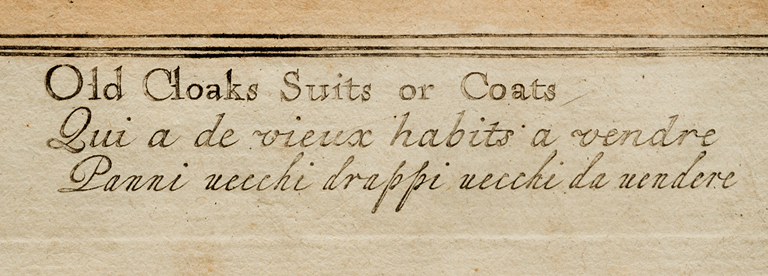 Old Cloaks Suits or Coats
Qui a de vieux habits a vendre
Panni uecchi drappi uecchi da uendere